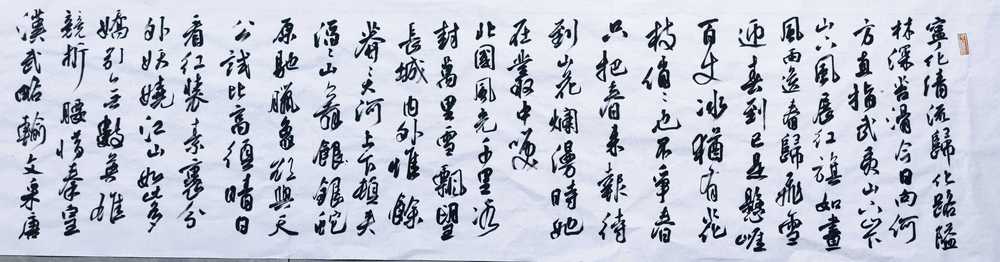 寧化清流歸化路隘
林深苔滑今日向何
方直指武夷山下
山下風展紅旗如畫
風雨送春歸飛雪
迎春到已是懸崖
百丈冰猶有花
枝俏〻也不爭春
只把春來報待
到山花爛漫時她
在叢中笑
北國風光千里冰
封萬里雪飄望
長城內外惟餘
莽〻大河上下頓失
滔〻山舞銀銀蛇
原馳臘象欲與天
公試比高須晴日
看紅裝素裹分
外妖嬈江山如此多
嬌引無數英雄
競折腰惜秦皇
漢武略輸文采唐